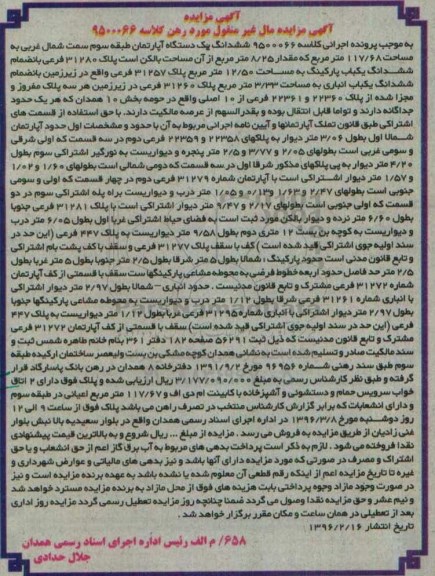 آگهی مزایده
آگهی مزایده مال غیر منقول مورد رهن کلاسه ۹۵۰۰۰۶۶
به موجب پرونده اجرائی کلاسه ۹۵۰۰۰۶۶ ششدانگ یک دستگاه آپارتمان طبقه سوم سمت شمال غربی به
مساحت ۱۱۷/۶۸ متر مربع که مقدار ۸/۲۵ متر مربع از آن مساحت بالکن است پلاک ۳۱۲۸۰ فرعی بانضمام
ششدانگ یکباب پارکینگ به مساحت ۱۲/۵۰ متر مربع پلاک ۳۱۲۵۷ فرعی واقع در زیرزمین بانضمام
ششدانگ یکباب انباری به مساحت ۳/۳۳ متر مربع پلاک ۳۱۲۶۰ فرعی در زیرزمین هر سه پلاک مفروز و
مجزا شده از پلاک ۲۲۳۶۰ و ۲۲۳۶۱ فرعی از ۱۰ اصلی واقع در حومه بخش ۱۰ همدان که هر یک حدود
جداگانه دارند و تواما قابل انتقال بوده و بقدرالسهم از عرصه مالکیت دارند، با حق استفاده از قسمت های
اشتراکی طبق قانون تملک آپارتمانها و آیین نامه اجرائی مربوط به آن با حدود و مشخصات اول حدود آپارتمان
شمالا اول بطول ۳/۰۶ متر دیوار به پلاکهای ۲۲۳۵۸ و ۲۲۳۵۹ فرعی دوم در سه قسمت که اولی شرقی
و سومی غربی است بطولهای ۲/۰۵ و ۳/۷۷ و ۲/۵ متر پنجره و دیواریست به نورگیر اشتراکی سوم بطول
۴/۲۰ متر دیوار به پی پلاکهای مذکور شرقا اول در سه قسمت که دومی شمالی است بطولهای ۱/۶۰ و ۱/۰۲
و ۱/۵۷ متر دیوار اشتراکی است با آپارتمان شماره ۳۱۲۷۹ فرعی دوم در چهار قسمت که اولی و سومی
جنوبی است بطولهای ۲/۴۷ و ۱/۶۳ و ۰/۱۳ و ۱/۰۵ متر درب و دیواریست براه پله اشتراکی سوم در دو
قسمت که اولی جنوبی است بطولهای ۲/۱۷ و ۹/۴۷ متر دیوار اشتراکی است با پلاک ۳۱۲۸۱ فرعی جنوبا
بطول ۶/۶۰ متر نرده و دیوار بالکن مورد ثبت است به فضای حیاط اشتراکی غربا اول بطول ۶/۰۵ متر درب
و دیواریست به کوچه بن بست ۱۲ متری دوم بطول ۹/۵۸ متر دیواریست به پلاک ۴۴۷ فرعی (این حد در
سند اولیه جوی اشتراکی قید شده است) کف با سقف پلاک ۳۱۲۷۷ فرعی و سقف با کف پشت بام اشتراکی
و تابع قانون مدنی است حدود پارکینگ : شمالا بطول ۵ متر شرقا بطول ۲/۵ متر جنوبا بطول ۵ متر غربا بطول
۲/۵ متر حد فاصل حدود اربعه خطوط فرضی به محوطه مشاعی پارکینگها ست سقف با قسمتی از کف آپارتمان
شماره ۳۱۲۷۲ فرعی مشترک و تابع قانون مدنیست . حدود انباری – شمالا بطول ۲/۹۷ متر دیوار اشتراکی
با انباری شماره ۳۱۲۶۱ فرعی شرقا بطول ۱/۱۲ متر درب و دیواریست به محوطه مشاعی پارکینگها جنوبا
بطول ۲/۹۷ متر دیوار اشتراکی با انباری شماره ۳۱۲۹۵ فرعی غربا بطول ۱/۱۲ متر دیواریست به پلاک ۴۴۷
فرعی (این حد در سند اولیه جوی اشتراکی قید شده است) سقف با قسمتی از کف آپارتمان ۳۱۲۷۲ فرعی
مشترک و تابع قانون مدنیست که ذیل ثبت ۵۶۲۹۱ صفحه ۱۸۲ دفتر ۳۶۱ بنام خانم طاهره شمس ثبت و
سند مالکیت صادر و تسلیم شده است به نشانی همدان کوچه مشکی بن بست ولیعصر ساختمان ارکیده طبقه
سوم طبق سند رهنی شماره ۹۶۹۵۶ مورخ ۱۳۹۱/۹/۲ دفترخانه ۸ همدان در رهن بانک پاسارگاد قرار
گرفته و طبق نظر کارشناس رسمی به مبلغ ۳/۱۷۷/۰۹۰/۰۰۰ ریال ارزیابی شده و پلاک فوق دارای ۲ اتاق
خواب سرویس حمام و دستشوئی و آشپزخانه با کابینت ام دی اف و ۱۱۷/۶۷ متر مربع اعیانی در طبقه سوم
و دارای انشعابات که برابر گزارش کارشناس منتخب در تصرف راهن می باشد پلاک فوق از ساعت ۹ الی ۱۲
روز دوشنبه مورخ ۱۳۹۶/۳/۸ در اداره اجرای اسناد رسمی همدان واقع در بلوار سعیدیه بالا نبش بلوار
غدیرزادیان از طریق مزایده به فروش می رسد . مزایده از مبلغ ... ریال شروع و به بالاترین قیمت پیشنهادی
نقدا فروخته می شود . لازم به ذکر است پرداخت بدهی های مربوط به آب برق گاز اعم از حق انشعاب و یا حق
اشتراک و مصرف در صورتی که مورد مزایده دارای آنها باشد و نیز بدهی های مالیاتی و عوارض شهرداری و
غیره تا تاریخ مزایده اعم از اینکه رقم قطعی آن معلوم شده یا نشده باشد به عهده برنده مزایده است و نیز
در صورت وجود مازاد وجوه پرداختی بابت هزینه های فوق از محل مازاد به برنده مزایده مسترد خواهد شد
و نیم عشر و حق مزایده نقدا وصول می گردد ضمنا چنانچه روز مزایده تعطیل رسمی گردد مزایده روز اداری
بعد از تعطیلی در همان ساعت و مکان مقرر برگزار خواهد شد .
تاریخ انتشار ۱۳۹۶/۲/۱۶
۶۵۸/ م الف رئیس اداره اجرای اسناد رسمی همدان
جلال حدادی